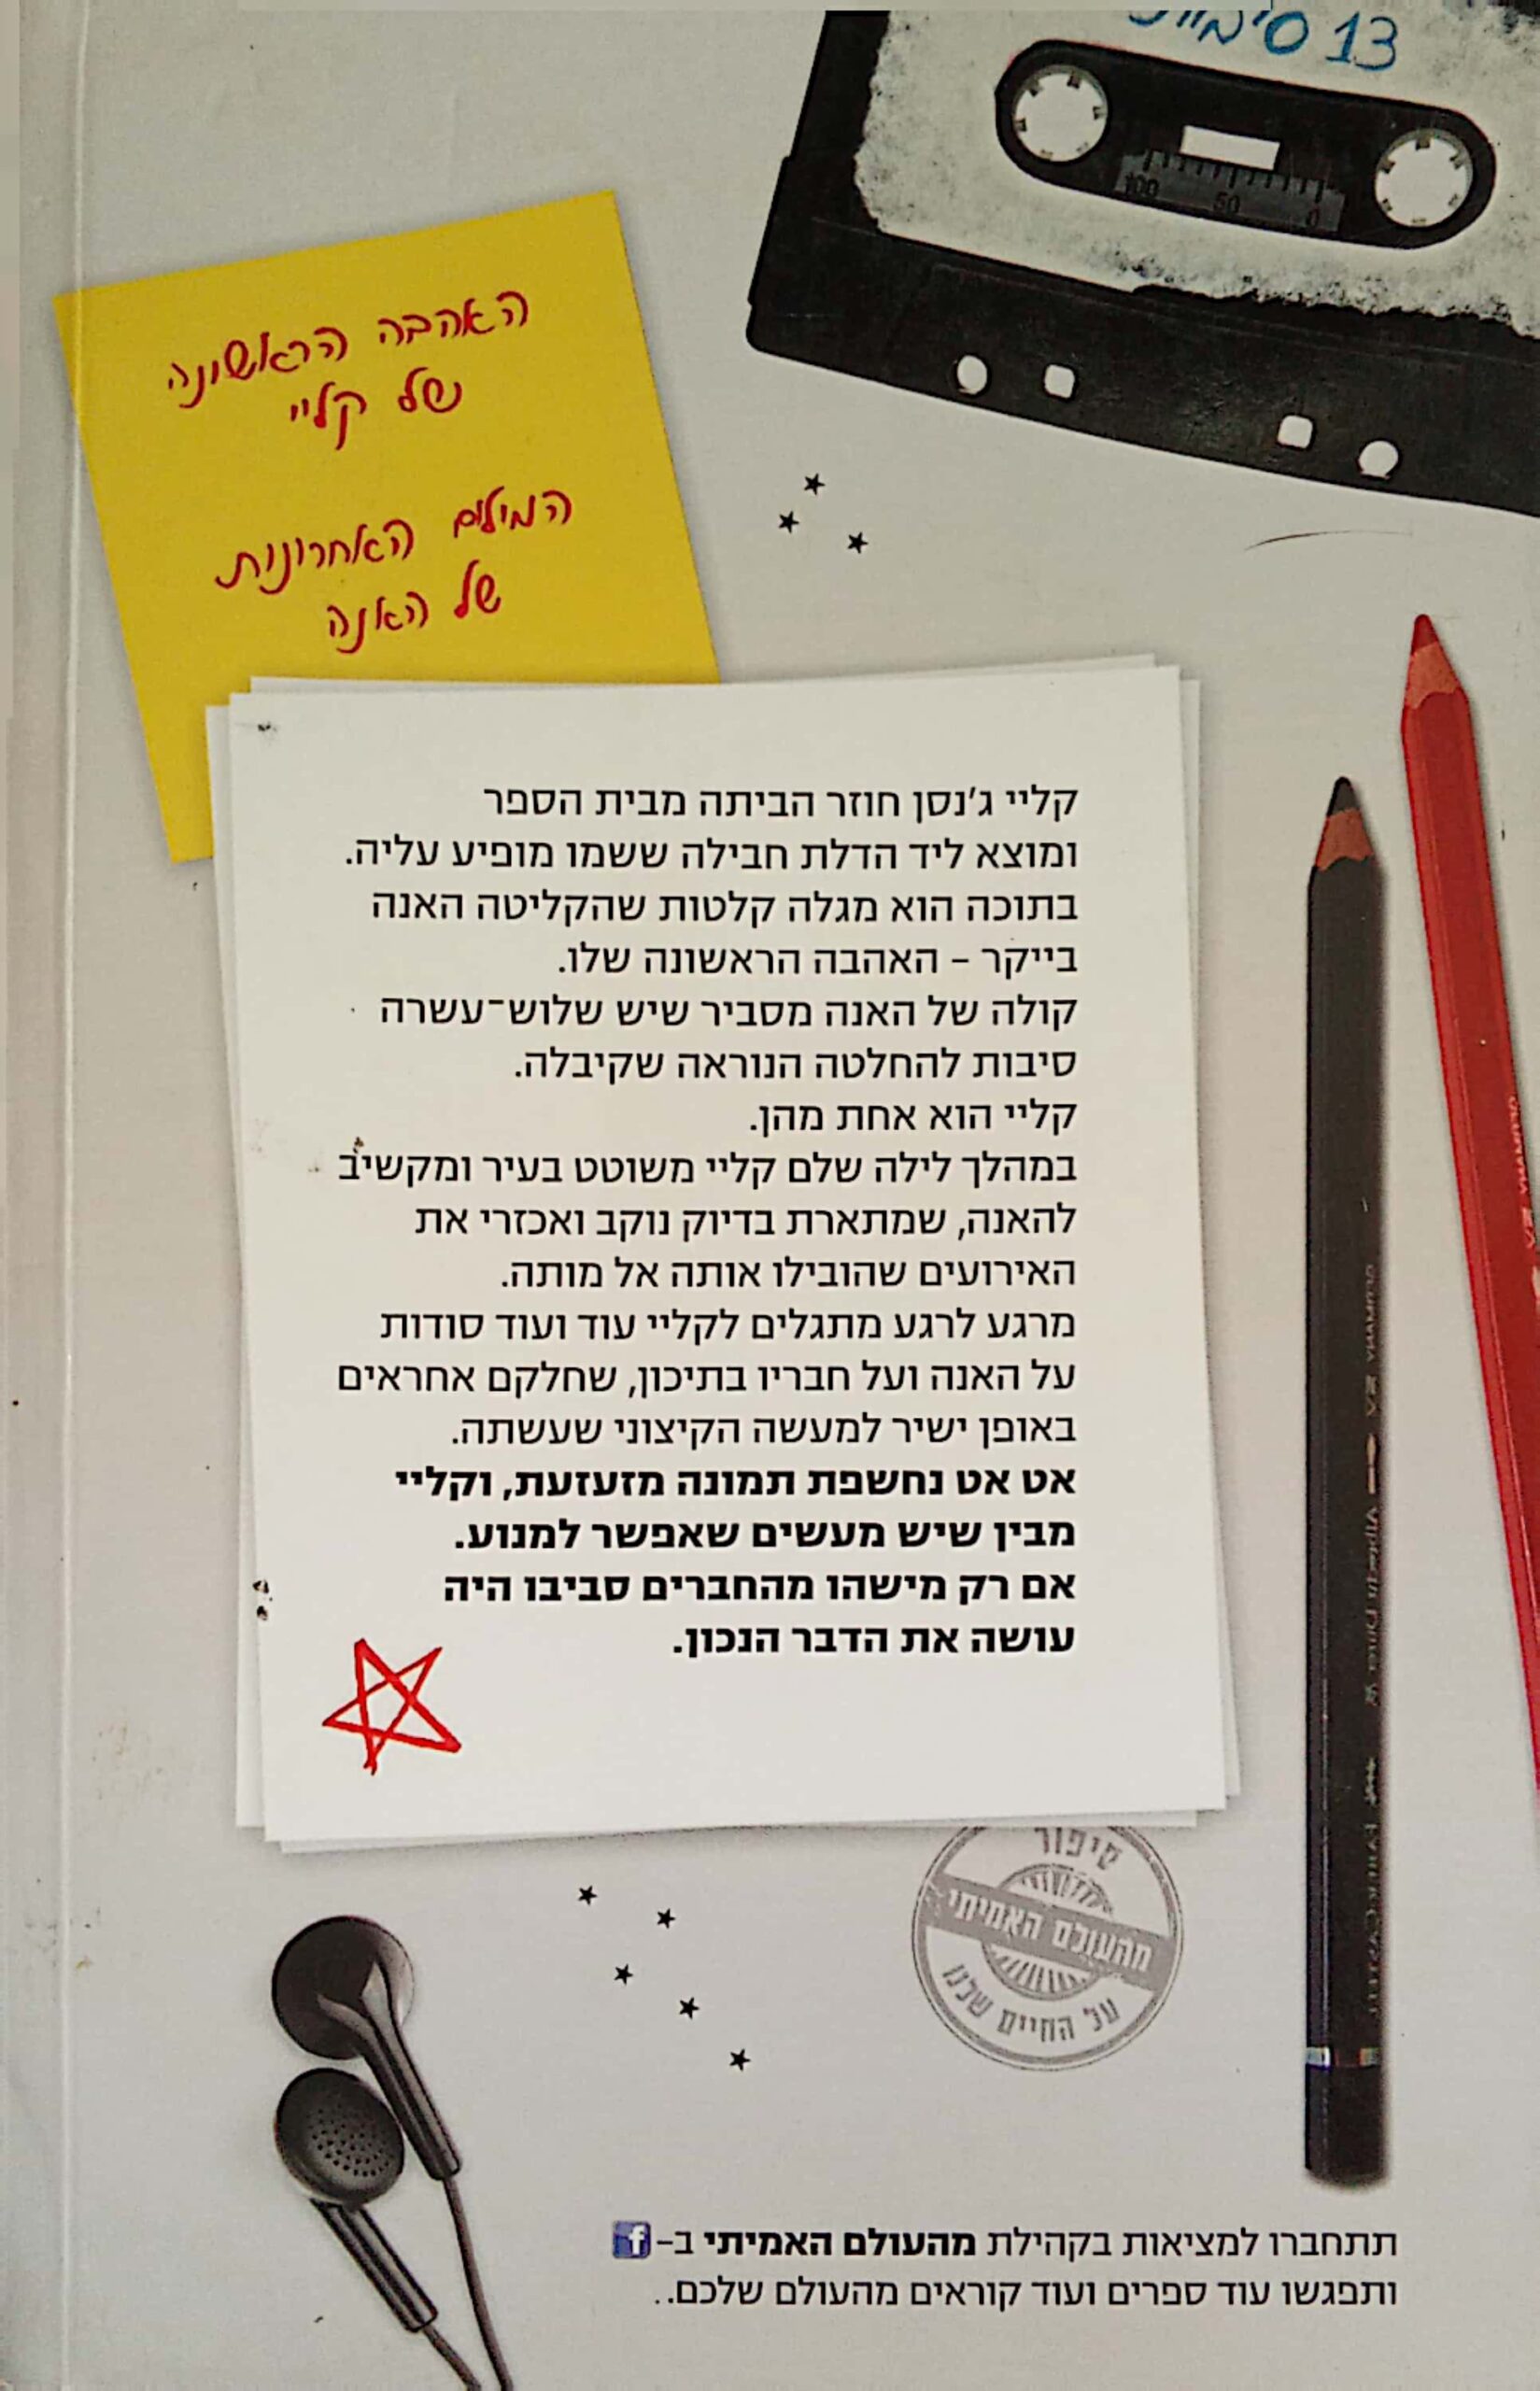 13 סימות
האהבה הראשונה
של קליי
המילים האחרונות
של האנה
קליי ג'נסן חוזר הביתה מבית הספר
ומוצא ליד הדלת חבילה ששמו מופיע עליה.
בתוכה הוא מגלה קלטות שהקליטה האנה
בייקר – האהבה הראשונה שלו.
קולה של האנה מסביר שיש שלוש־עשרה
סיבות להחלטה הנוראה שקיבלה.
קליי הוא אחת מהן.
במהלך לילה שלם קליי משוטט בעיר ומקשיב
להאנה, שמתארת בדיוק נוקב ואכזרי את
האירועים שהובילו אותה אל מותה.
מרגע לרגע מתגלים לקליי עוד ועוד סודות
על האנה ועל חבריו בתיכון, שחלקם אחראים
באופן ישיר למעשה הקיצוני שעשתה.
אט אט נחשפת תמונה מזעזעת, וקליי
מבין שיש מעשים שאפשר למנוע.
אם רק מישהו מהחברים סביבו היה
עושה את הדבר הנכון.
סיפור
מהעולם האמיתי
על החיים שלנו
100 50 0
תתחברו למציאות בקהילת מהעולם האמיתי ב-f
ותפגשו עוד ספרים ועוד קוראים מהעולם שלכם..